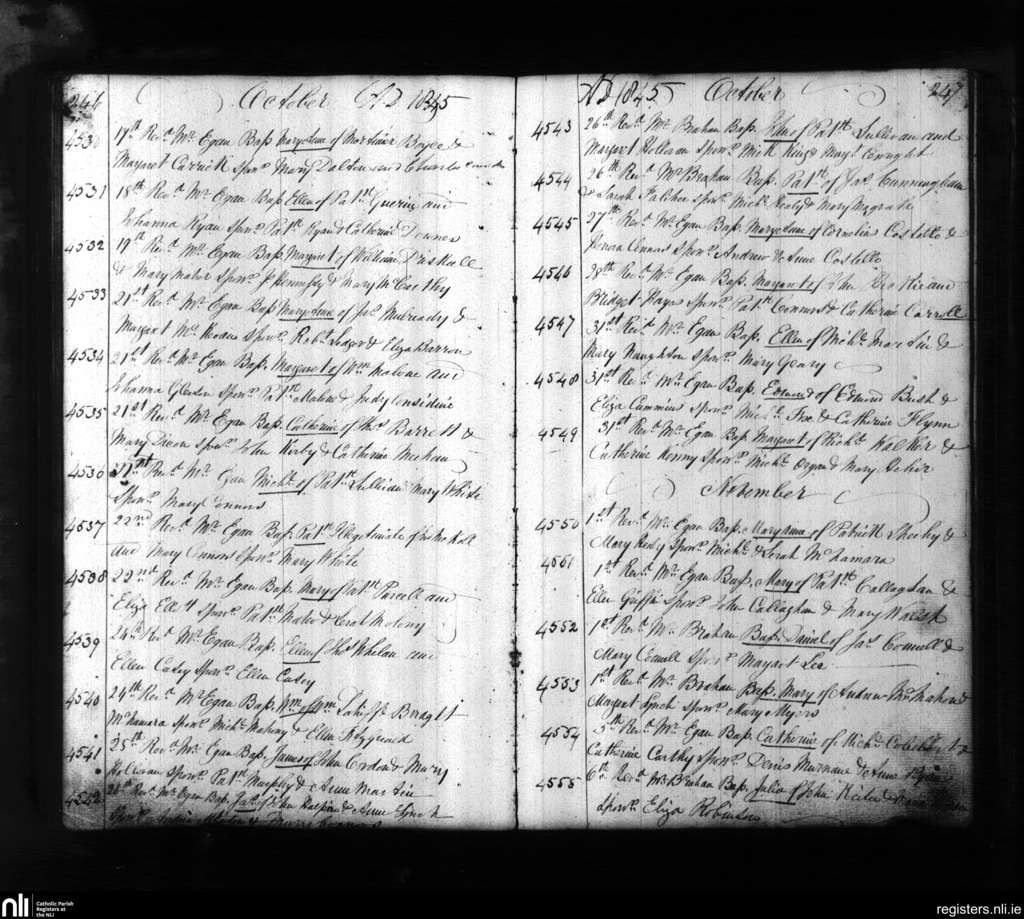 246 October AD 1845
4530 17th Revd. Mr. Egan Bap. Maryanne of Mortimer Boyce &
Margaret Carrick Sponrs. Mary Dalton and Charles
4531 18th Revd. Mr. Egan Bap. Ellen of Patt. Guerin and
Johanna Ryan Sponrs. Patt. Ryan & Catherine Downes
4532 19th Revd. Mr. Egan Bap. Margaret of William Driskell
& Mary Maher Sponrs. P Hennesy & Mary McCarthy
4533 21st Revd. Mr. Egan Bap. Mary Anne of Jas. Mulready &
Margaret Mc. Sponrs. Robt. & Eliza Barron
4534 21st Revd. Mr. Egan Bap. Margaret of Wm. Malone and
Johanna Gleeson Sponrs. Patt. Malone & Judy Considine
4535 21st Revd. Mr. Egan Bap. Catherine of Thos. Barrett &
Mary Sponrs. John Kirby & Catherine Meehan
4536 21st Revd. Mr. Egan Michl. of Patt. Sullivan Mary White
Sponr. Mary Connors
4537 22nd Revd. Mr. Egan Bap. Patt. Illegetimate of
and Mary Connors Sponr. Mary White
4538 22nd Revd. Mr. Egan Bap. Mary of Patt. Purcell and
Eliza Elliott Sponrs. Patt. Maher & Molony
4539 24th Revd. Mr. Egan Bap. Ellen of Thos. Whelan and
Ellen Casey Sponr. Ellen Casey
4540 24th Revd. Mr. Egan Bap. Wm. of Wm. Bridgett
McNamara Sponrs. Michl. Mahony & Ellen Fitzgerald
4541 25th Revd. Mr. Egan Bap. James of John Crodon & Mary
Holloran Sponrs. Patt. Murphy & Anne
4542 26th Revd. Mr. Egan Bap. of John & Anne Lynch
Sponrs.
AD 1845 October 247
4543 26th Revd. Mr. Brahan Bap. John of Patt. Sullivan and
Margaret Holloran Sponrs. Michl. King & Mary Connaght
4544 26th Revd. Mr. Brahan Bap. Patt. of Jas. Cunningham
& Sarah Sponrs. Michl. Healy & Mary Magrath
4545 27th Revd. Mr. Egan Bap. Mary Anne of Cornelius Costello &
Honora Connors Sponrs. Andrew & Anne Costello
4546 28th Revd. Mr. Egan Bap. Margaret of John and
Bridget Hayes Sponrs. Patt. Connors & Catherine Carroll
4547 31st Revd. Mr. Egan Bap. Ellen of Michl. &
Mary Naughton Sponr. Mary Geary
4548 31st Revd. Mr. Egan Bap. Edmond of Edmond Bush &
Eliza Cummins Sponrs. Michl. Fox & Catherine Flynn
4549 31st Revd. Mr. Egan Bap. Margaret of Richd. Walker &
Catherine Kenny Sponrs. Michl. & Mary
November
4550 1st Revd. Mr. Egan Bap. Maryanne of Patrick Sheehy &
Mary Healy Sponrs. Michl. & Sarah McNamara
4551 1st Revd. Mr. Egan Bap. Mary of Patt. Callaghan &
Ellen Griffin Sponrs. John Callaghan & Mary Walsh
4552 1st Revd. Mr. Brahan Bap. Daniel of Jas. Connell &
Mary Connell Sponr. Margaret Lee
4553 1st Revd. Mr. Brahan Bap. Mary of Andrew McMahon &
Margaret Lynch Sponr. Mary Myers
4554 5th Revd. Mr. Egan Bap. Catherine of Richd. &
Catherine Carthy Sponrs. Denis Murnane & Anne Ryan
4555 6th Revd. Mr. Brahan Bap. Julia of John &
Sponr. Eliza Robinson
nli Catholic Parish
Registers at
the NLI
registers.nli.ie